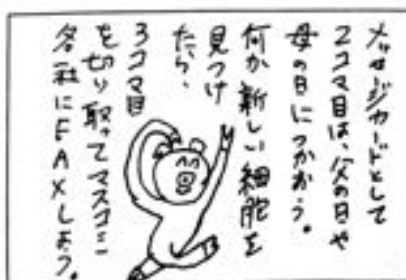 メッセージカードとして
2コマ目は、父の日や
母の日につかおう。
何か新しい細胞を
見つけ
たら、
3コマ目
を切り取ってマスコミ
各社にFAXしよう。